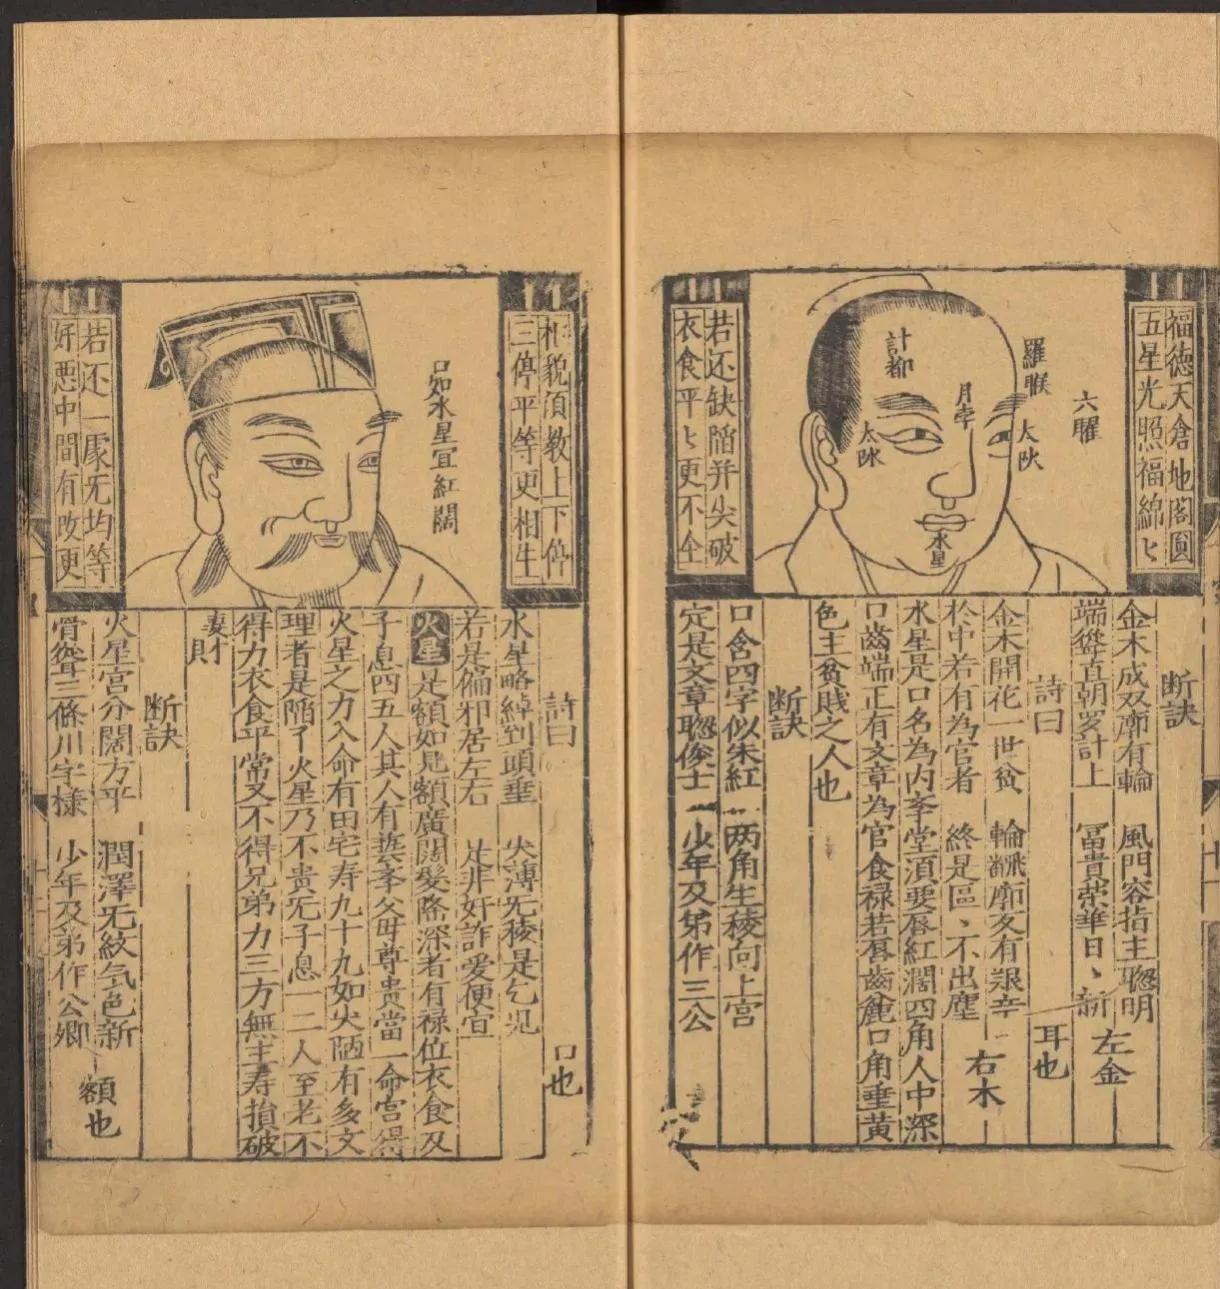 福德天倉地閣圓
五星光照福綿〻
六曜
羅睺
計都
月孛
水星
若还缺陷并尖破
衣食平〻更不全
断訣
金木成双廓有輪 風門容指主聦明
端聳直朝罗計上 冨貴荣華日〻新 左金
詩曰 耳也
金木開花一世貧 輪飜廓反有艱辛
於中若有為官者 終是區〻不出塵 右木
水星是口名為内孝堂湏要唇紅濶四角人中深
口齒端正有文章為官食禄若唇齒麄口角垂黄
色主贫賤之人也
断訣
口含四字似朱紅 两角生稜向上宫
定是文章聦俊士 少年及苐作三公
相貌湏教上下停
三停平等更相生
口如水星宜紅闊
若还一家无均等
好恶中間有改更
詩曰 口也
水星略綽到頭垂 尖薄无稜是乞児
若是偏邪居左右 是非奸詐愛便宜
火星是額如見額廣闊髮际深者有禄位衣食及
子息四五人其人有藝孝父母尊贵當一命宫得
火星之力入命有田宅寿九十九如尖陋有多文
理者是陷了火星乃不贵无子息一二人至老不
得力衣食平常又不得兄弟力三方無主寿損破
妻財
断訣
火星宫分闊方平 潤澤无紋気色新
骨聳三條川字様 少年及苐作公卿 額也